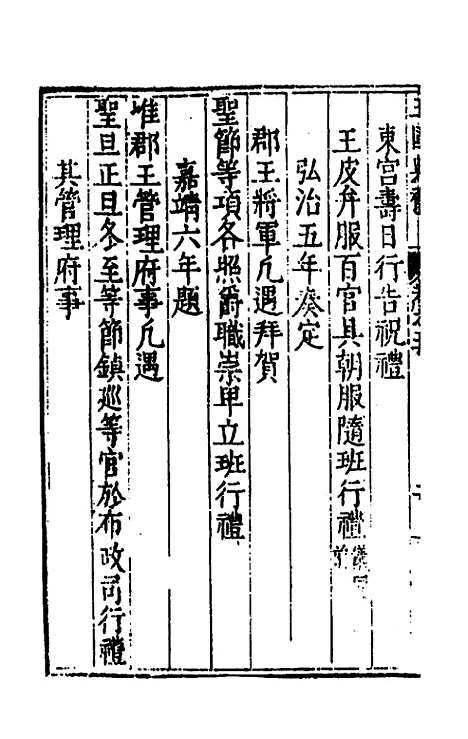 東宮壽日行告祝禮
王皮弁服百官具朝服隨班行禮儀同前
弘治五年奏定
郡王將軍凡遇拜賀
聖節等項各照爵職崇卑立班行禮
嘉靖六年題
准郡王管理府事凡遇
聖旦正旦冬至等節鎮巡等官於布政司行禮
其管理府事